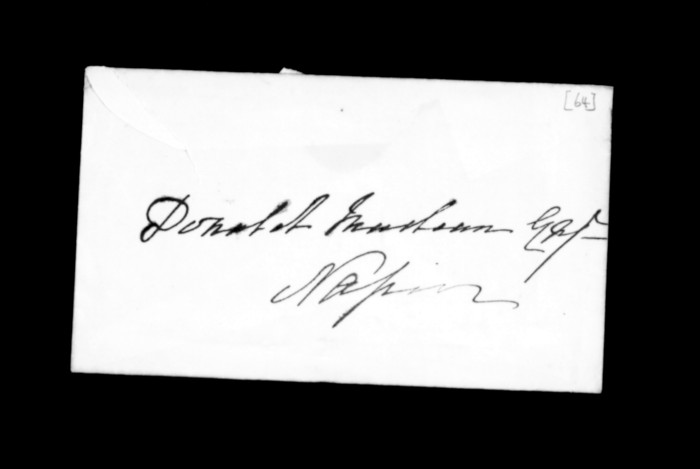 [64]
Donald McLean Esqr
Napier